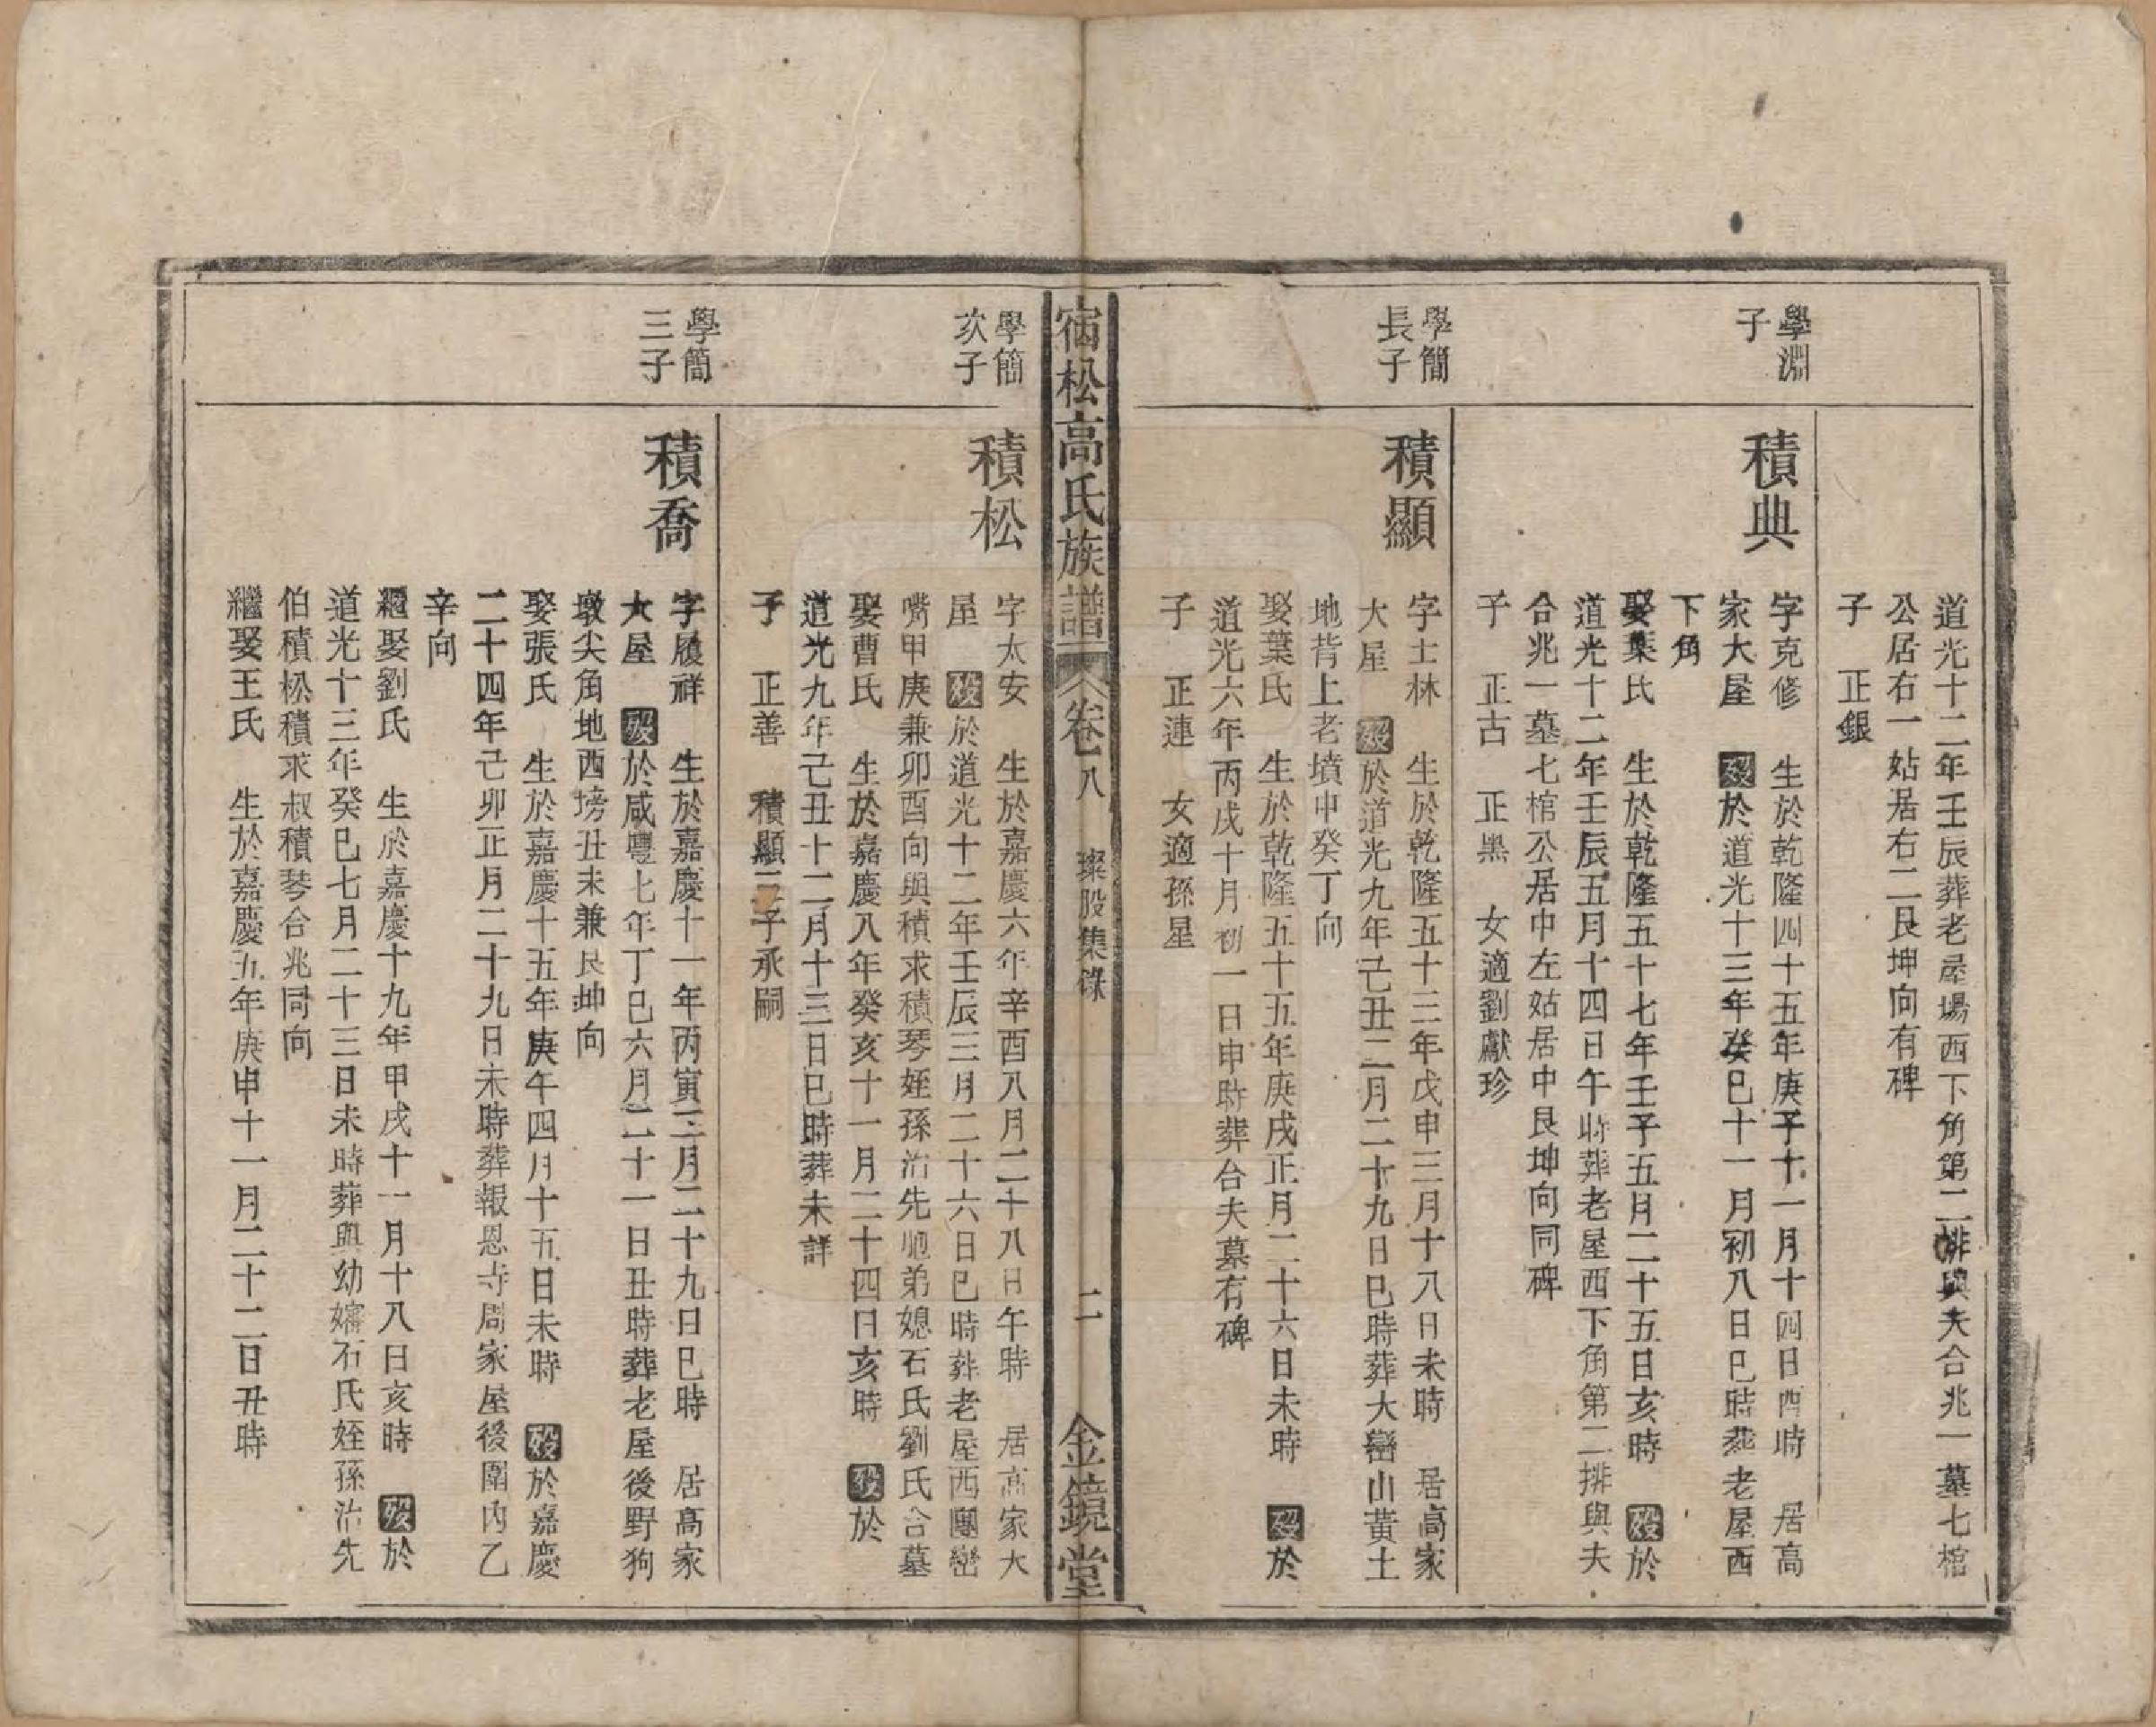 道光十二年壬辰葬老屋場西下角第二排與夫合兆一墓七棺
公居右一姑居右二艮坤向有碑
子　正銀
學淵
子
積典
字克修　生於乾隆四十五年庚子十一月十四日酉時　居高
家大屋　歿於道光十三年癸巳十一月初八日巳時葬老屋西
下角
娶葉氏　生於乾隆五十七年壬子五月二十五日亥時　歿於
道光十二年壬辰五月十四日午時葬老屋西下角第二排與夫
合兆一墓七棺公居中左姑居中艮坤向同碑
子　正古　正黑　女適劉獻珍
學簡
長子
積顯
字士林　生於乾隆五十三年戊申三月十八日未時　居高家
大屋　歿於道光九年己丑二月二十九日巳時葬大巒山黃土
地背上老墳中癸丁向
娶葉氏　生於乾隆五十五年庚戌正月二十六日未時　歿於
道光六年丙戌十月初一日申時葬台夫墓有碑
子　正連　女適孫星
宿松高氏族譜　卷八　璨股集錄　二　金鏡堂
學簡
次子
積松
字太安　生於嘉慶六年辛酉八月二十八日午時　居高家大
屋　歿於道光十二年壬辰三月二十六日巳時葬老屋西團巒
嘴甲庚兼卯酉向與積求積琴姪孫治先馳弟媳石氏劉氏合墓
娶曹氏　生於嘉慶八年癸亥十一月二十四日亥時　歿於
道光九年己丑十二月十三日巳時葬未詳
子　正善　積顯二子承嗣
學簡
三子
積喬
字履祥　生於嘉慶十一年丙寅三月二十九日巳時　居高家
大屋　歿於咸豐七年丁巳六月二十一日丑時葬老屋後野狗
墩尖角地西塝丑未兼艮坤向
娶張氏　生於嘉慶十五年庚午四月十五日未時　歿於嘉慶
二十四年己卯正月二十九日未時葬報恩寺周家屋後園內乙
辛向
繼娶劉氏　生於嘉慶十九年甲戌十一月十八日亥時　歿於
道光十三年癸巳七月二十三日未時葬與幼嬸石氏姪孫治先
伯積松積求叔積琴合兆同向
繼娶王氏　生於嘉慶五年庚申十一月二十二日丑時